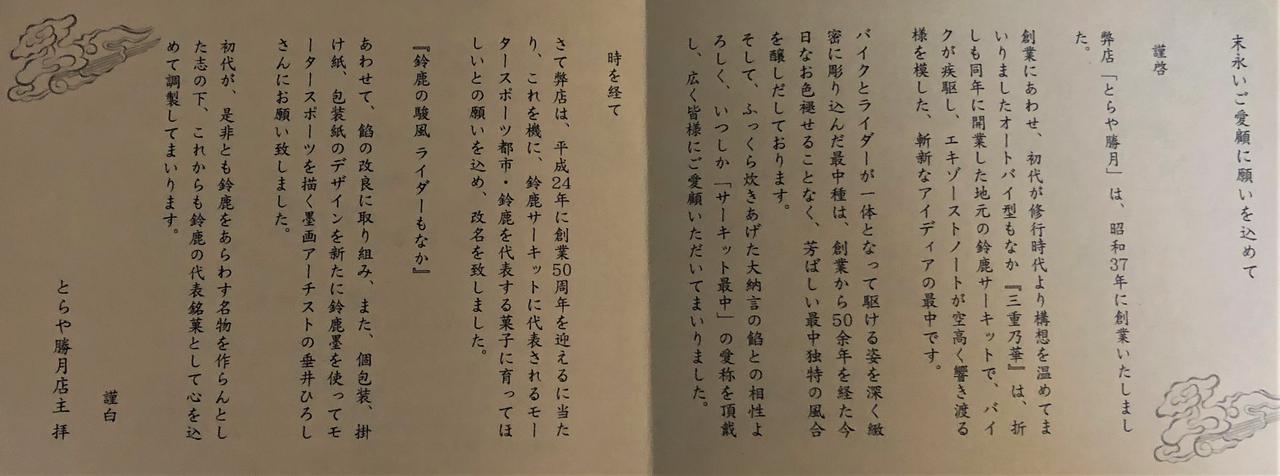 末永いご愛顧に願いを込めて
謹啓
弊店「とらや勝月」は、昭和37年に創業いたしまし
た。
創業にあわせ、初代が修行時代より構想を温めてま
いりましたオートバイ型もなか『三重乃華』は、折
しも同年に開業した地元の鈴鹿サーキットで、バイ
クが疾駆し、エキゾーストノートが空高く響き渡る
様を模した、斬新なアイディアの最中です。
バイクとライダーが一体となって駆ける姿を深く緻
密に彫り込んだ最中種は、創業から50余年を経た今
日なお色褪せることなく、芳ばしい最中独特の風合
を醸しだしております。
そして、ふっくら炊きあげた大納言の餡との相性よ
ろしく、いつしか「サーキット最中」の愛称を頂戴
し、広く皆様にご愛顧いただいてまいりました。
時を経て
さて弊店は、平成24年に創業50周年を迎えるに当た
り、これを機に、鈴鹿サーキットに代表されるモー
タースポーツ都市・鈴鹿を代表する菓子に育ってほ
しいとの願いを込め、改名を致しました。
『鈴鹿の駿風 ライダーもなか』
あわせて、餡の改良に取り組み、また、個包装、掛
け紙、包装紙のデザインを新たに鈴鹿墨を使ってモ
ータースポーツを描く墨画アーチストの垂井ひろし
さんにお願い致しました。
初代が、是非とも鈴鹿をあらわす名物を作らんとし
た志の下、これからも鈴鹿の代表銘菓として心を込
めて調製してまいります。
謹白
とらや勝月店主 拝